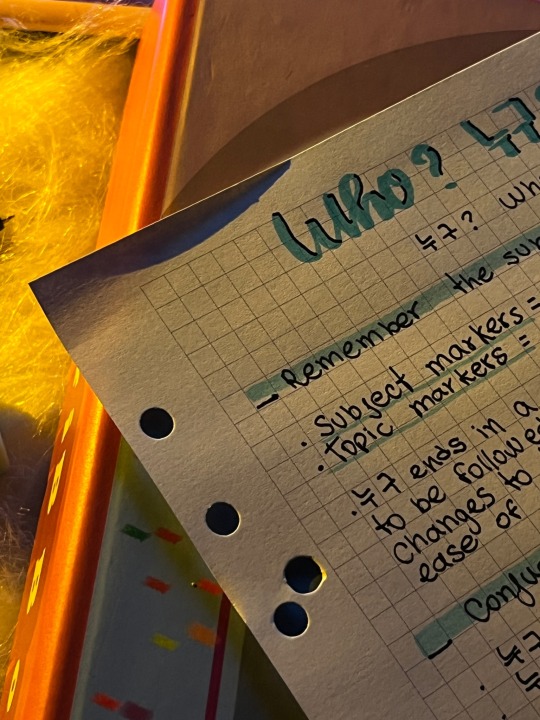 Who? 누구?
누구? Wh
- Remember the sub
· Subject markers =
· Topic markers =
· 누구 ends in a
to be followed
changes to
ease of
- Confu
· 누구